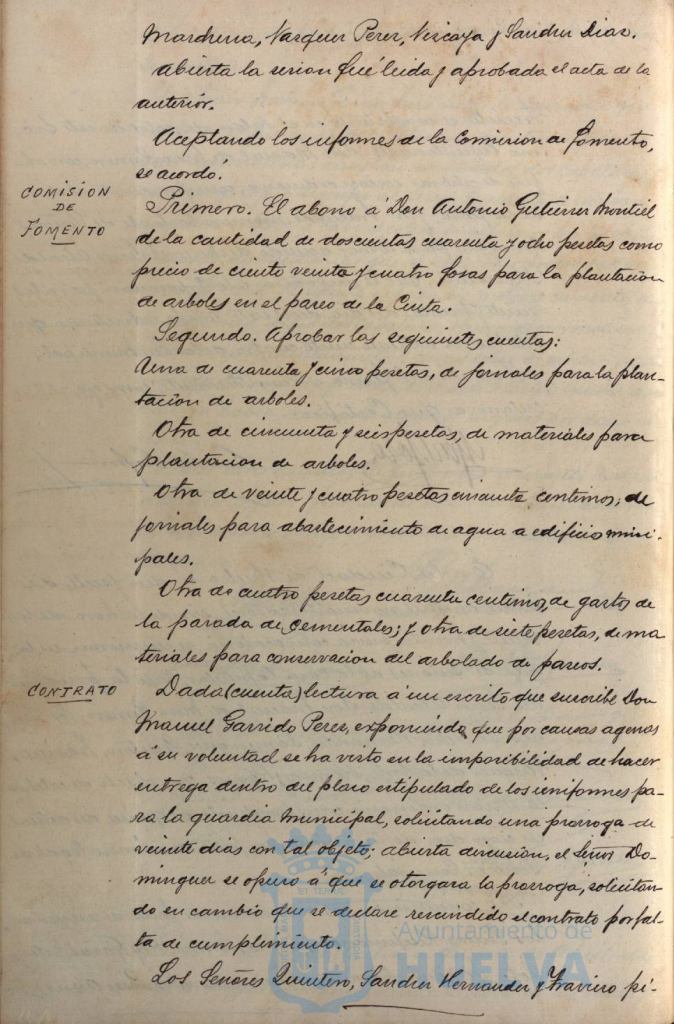 Marchena, Vazquez Perez, Vizcaya y Sanchez Diaz.
Abierta la sesion fué leida y aprobada el acta de la
anterior.
Aceptando los informes de la Comision de Fomento,
se acordó:
COMISION
DE
FOMENTO
Primero. El abono á Don Antonio Gutierrez Montiel
de la cantidad de doscientas cuarenta y ocho pesetas como
precio de ciento veinte y cuatro fosas para la plantacion
de arboles en el paseo de la Cinta.
Segundo. Aprobar las seguientes cuentas:
Una de cuarenta y cinco pesetas, de jornales para la plan-
tacion de arboles.
Otra de cincuenta y seis pesetas, de materiales para
plantacion de arboles.
Otra de veinte y cuatro pesetas cincuenta centimos, de
jornales para abastecimiento de agua a edificios muni-
pales.
Otra de cuatro pesetas cuarenta centimos, de gastos de
la parada de sementales; y otra de siete pesetas, de ma
teriales para conservacion del arbolado de paseos.
CONTRATO
Dada (cuenta) lectura á un escrito que suscribe Don
Manuel Garrido Perez, exponiendo que por causas agenas
á su voluntad se ha visto en la imposibilidad de hacer
entrega dentro del plazo estipulado de los uniformes pa-
ra la guardia Municipal, solicitando una prorroga de
veinte dias con tal objeto; abierta discusion, el Señor Do-
minguez se opuso á que se otorgara la prorroga, solicitan-
do en cambio que se declare rescindido el contrato por fal-
ta de cumplimiento.
Los Señores Quintero, Sanchez Hernandez y Traviero pi-
Ayuntamiento de
HUELVA